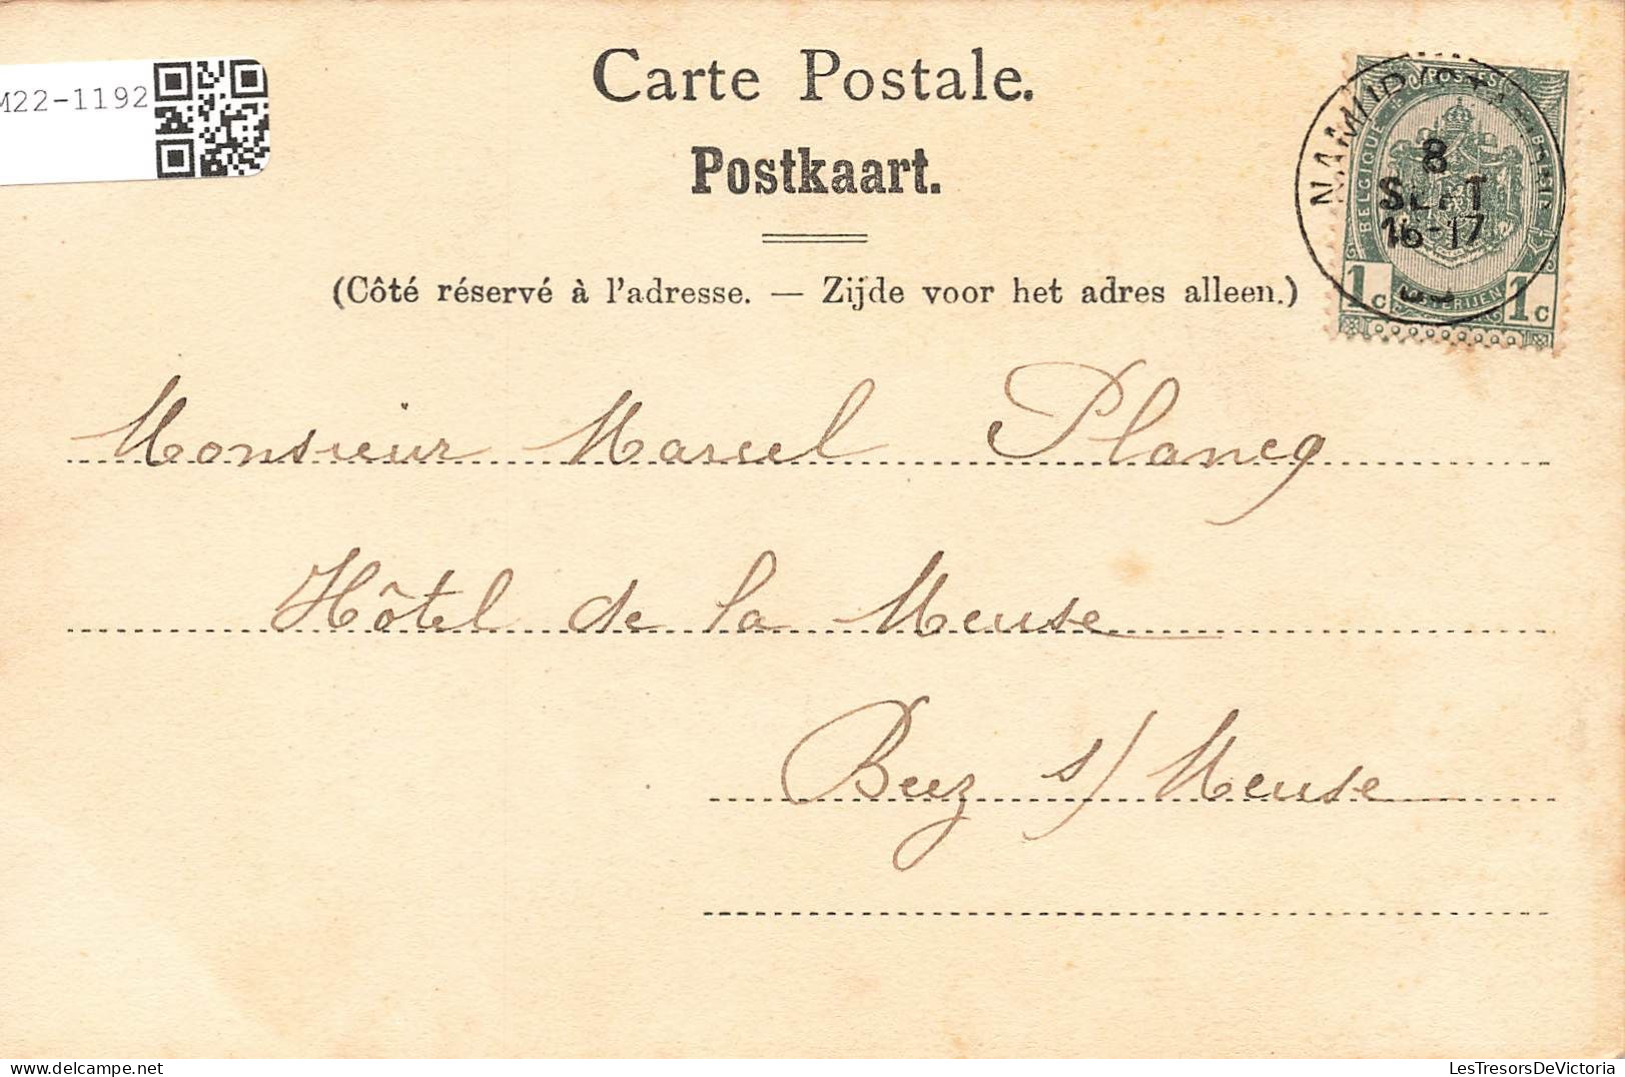 M22-1192
Carte Postale.
Postkaart.
(Côté réservé à l'adresse. — Zijde voor het adres alleen.)
NAMUR
8
SEPT
16-17
BELGIQUE
1c 1c
Monsieur Marcel Plancq
Hôtel de la Meuse
Beez s/ Meuse
LesTresorsDeVictoria